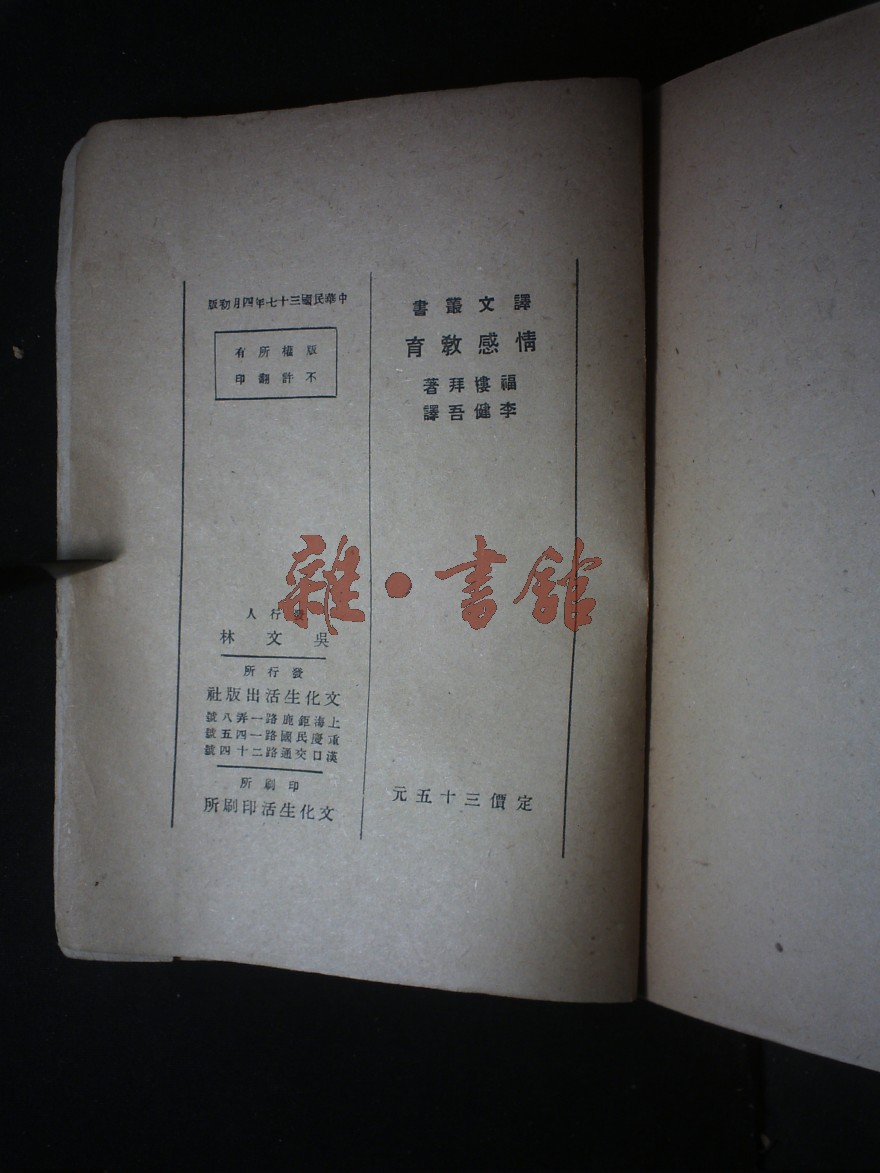 譯文叢書
情感教育
福樓拜著
李健吾譯
定價三十五元
中華民國三十七年四月初版
版權所有
不許翻印
發行人
吳文林
發行所
文化生活出版社
上海鉅鹿路一弄八號
重慶民國路一四五號
漢口交通路二十四號
印刷所
文化生活印刷所
雜·書館